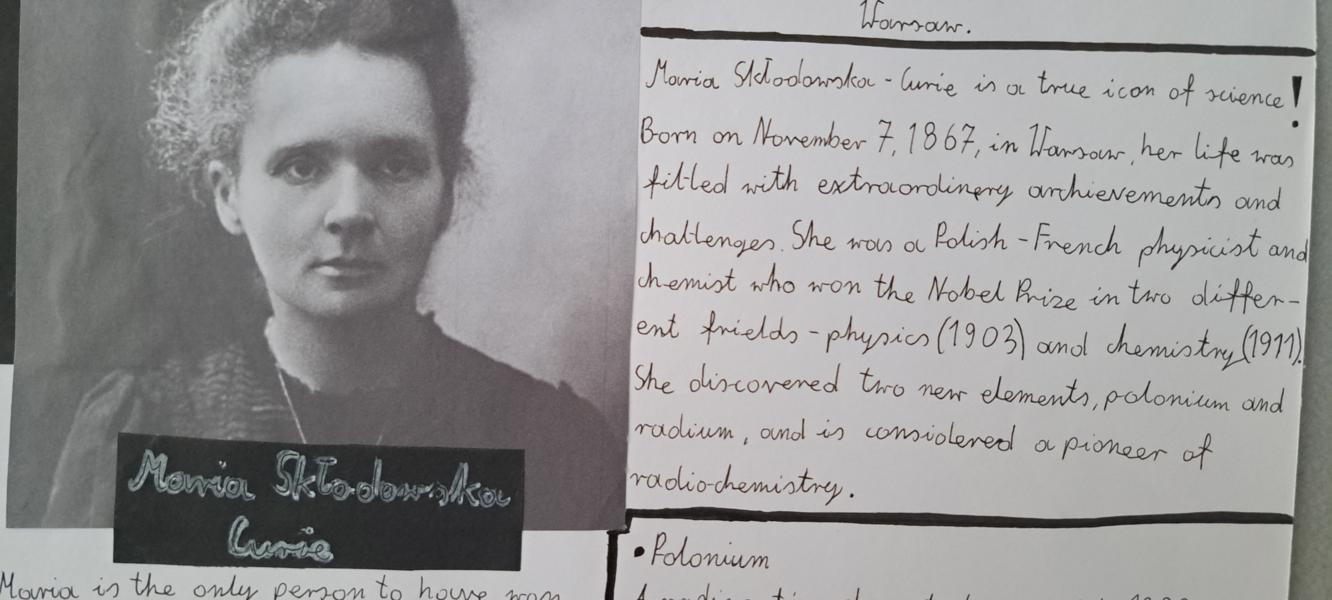 Warsaw.
Maria Skłodowska - Curie is a true icon of science!
Born on November 7, 1867, in Warsaw, her life was
filled with extraordinery archievements and
challenges. She was a Polish - French physicist and
chemist who won the Nobel Prize in two differ-
ent frields - physics (1903) and chemistry (1911).
She discovered two new elements, polonium and
radium, and is considered a pioneer of
radiochemistry.
Maria Skłodowska
Curie
Maria is the only person to have won
• Polonium